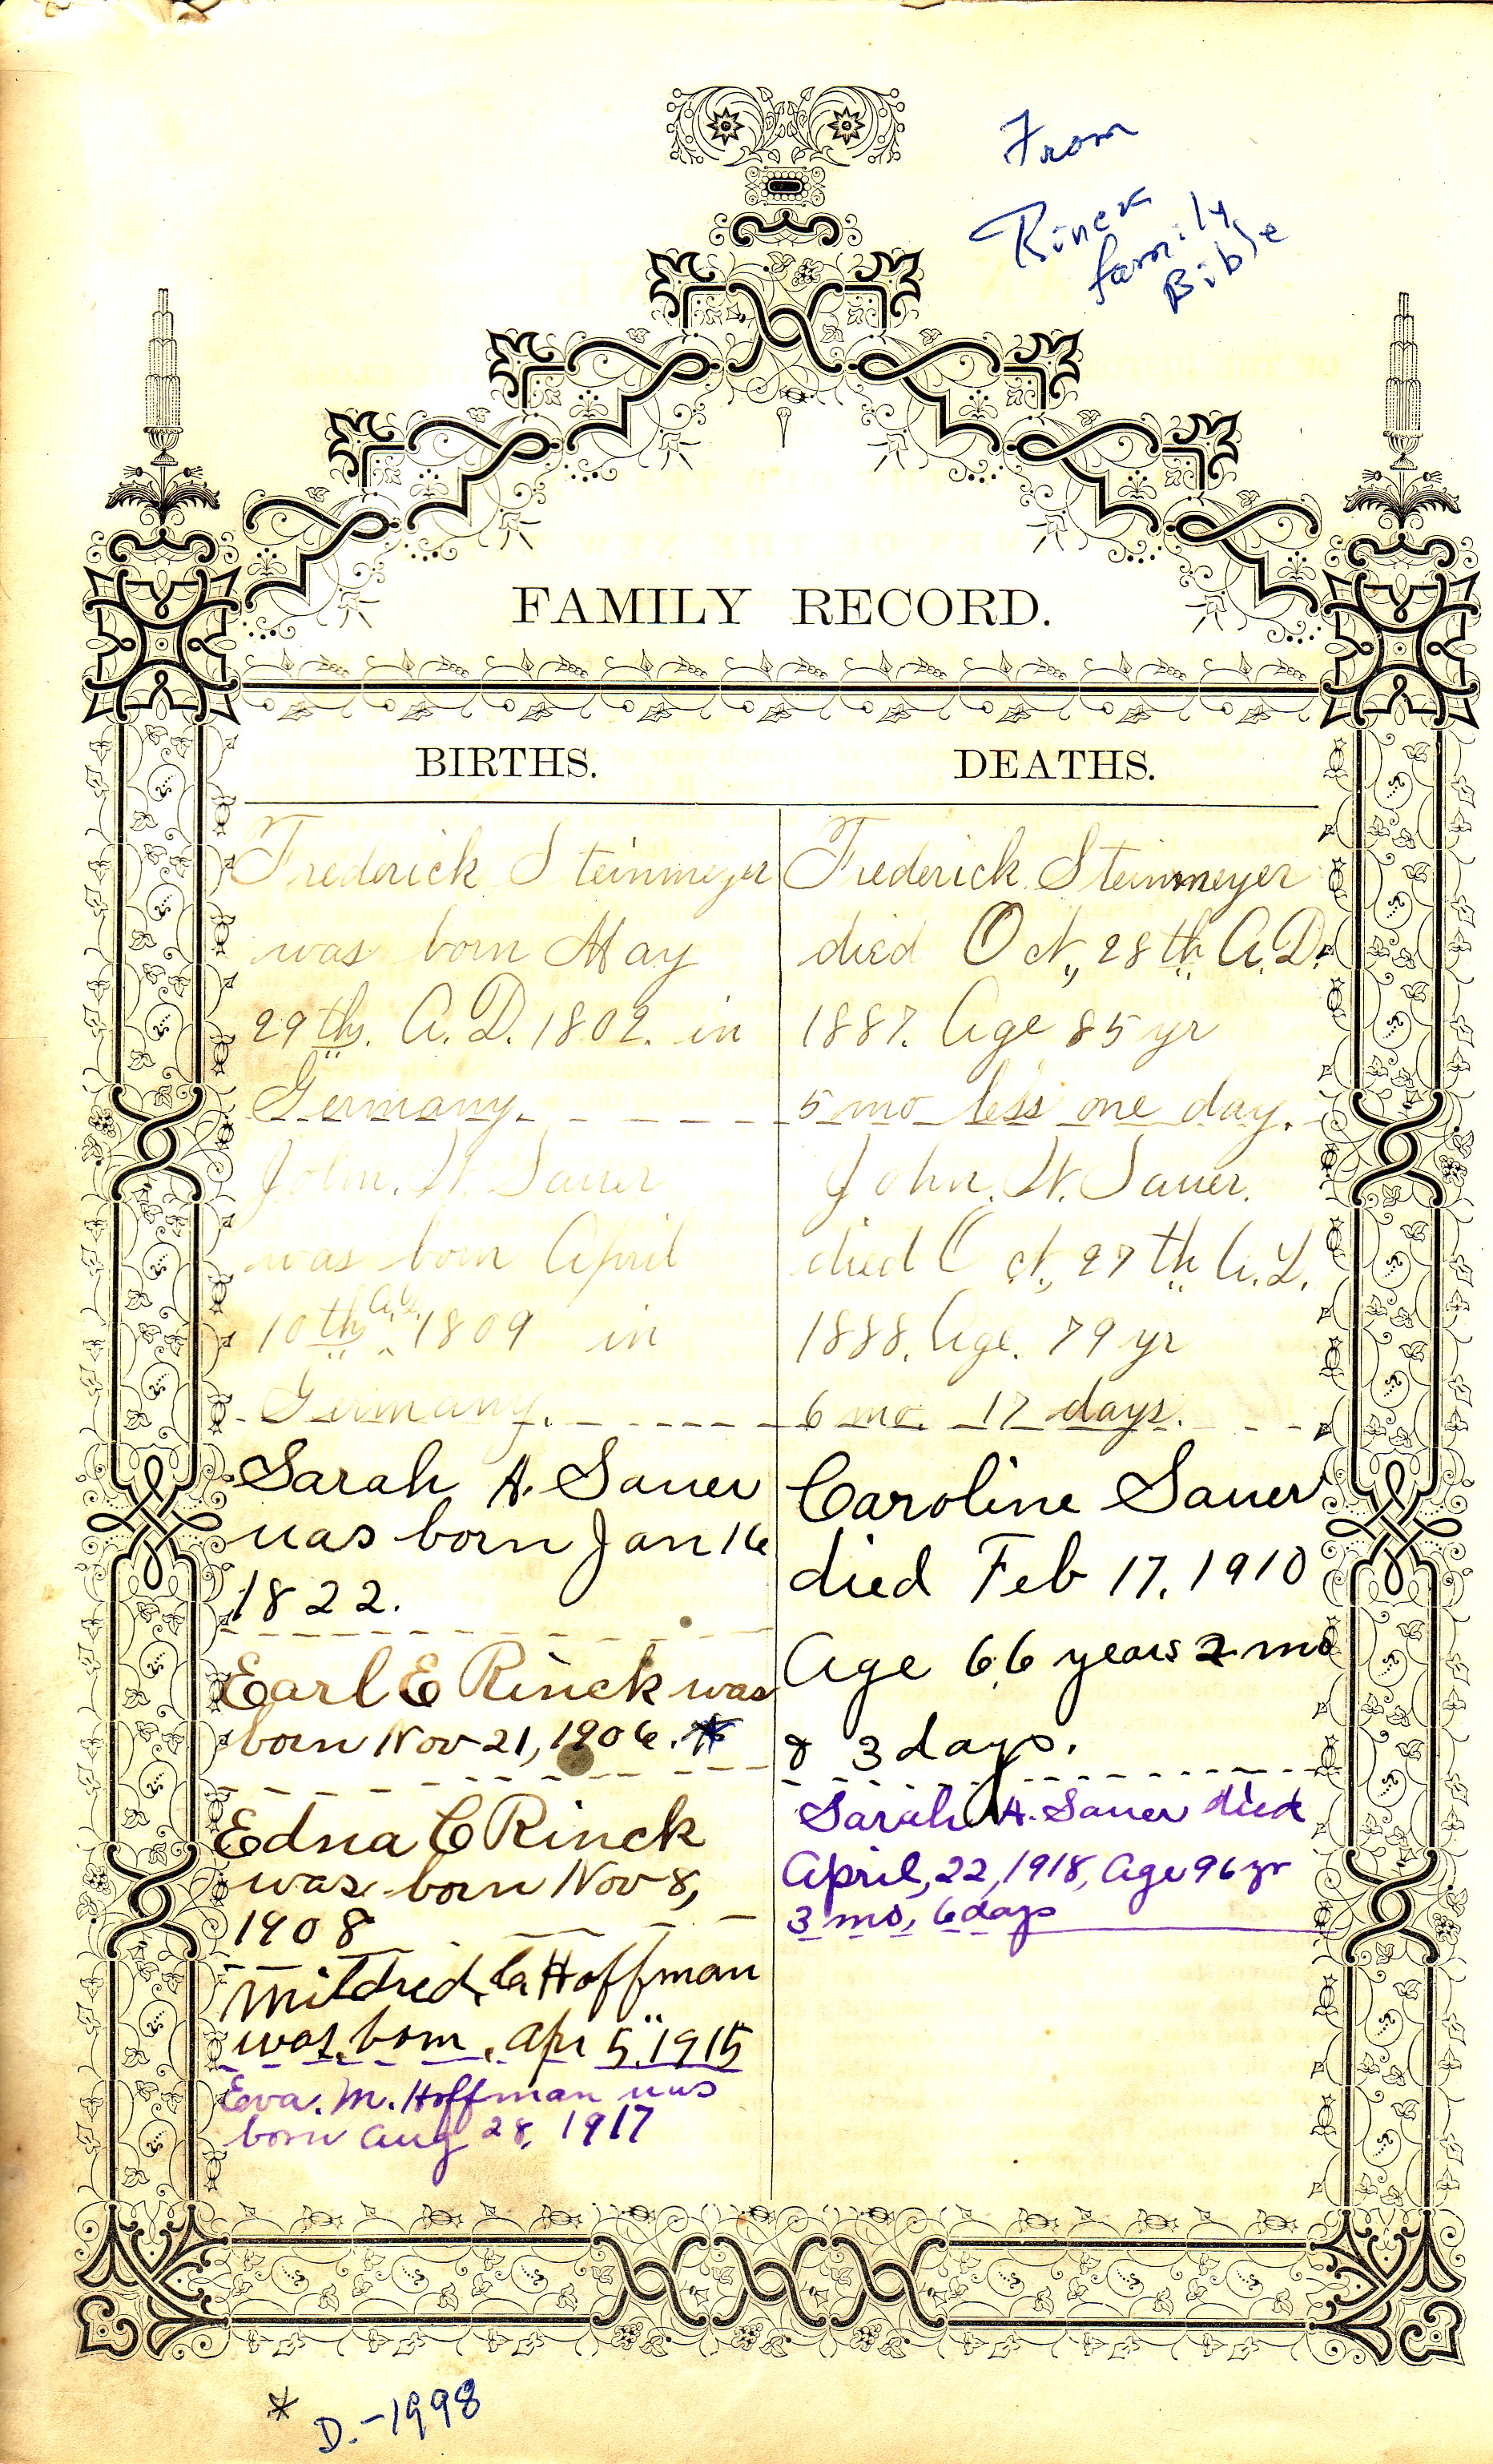 From
Rinck
family
Bible
FAMILY RECORD.
BIRTHS.
Frederick Steinmeyer
was born May
29th. A.D. 1802. in
Germany.
John. W. Sauer
was born April
10th A.D. 1809 in
Germany.
Sarah A. Sauer
was born Jan 16
1822.
Earl E Rinck was
born Nov 21, 1906. *
Edna C Rinck
was born Nov 8,
1908
Mildred, C. Hoffman
was born. Apr 5, 1915
Eva. M. Hoffman was
born Aug 28, 1917
DEATHS.
Frederick Steinmeyer
died Oct., 28th A.D.
1887. Age 85 yr
5 mo less one day.
John. W. Sauer.
died Oct., 27th A.D.
1888. Age. 79 yr
6 mo. 17 days.
Caroline Sauer
died Feb 17, 1910
Age 66 years 2 mo
& 3 days.
Sarah A. Sauer died
April, 22, 1918, Age 96 yr
3 mo, 6 days
* D.-1998